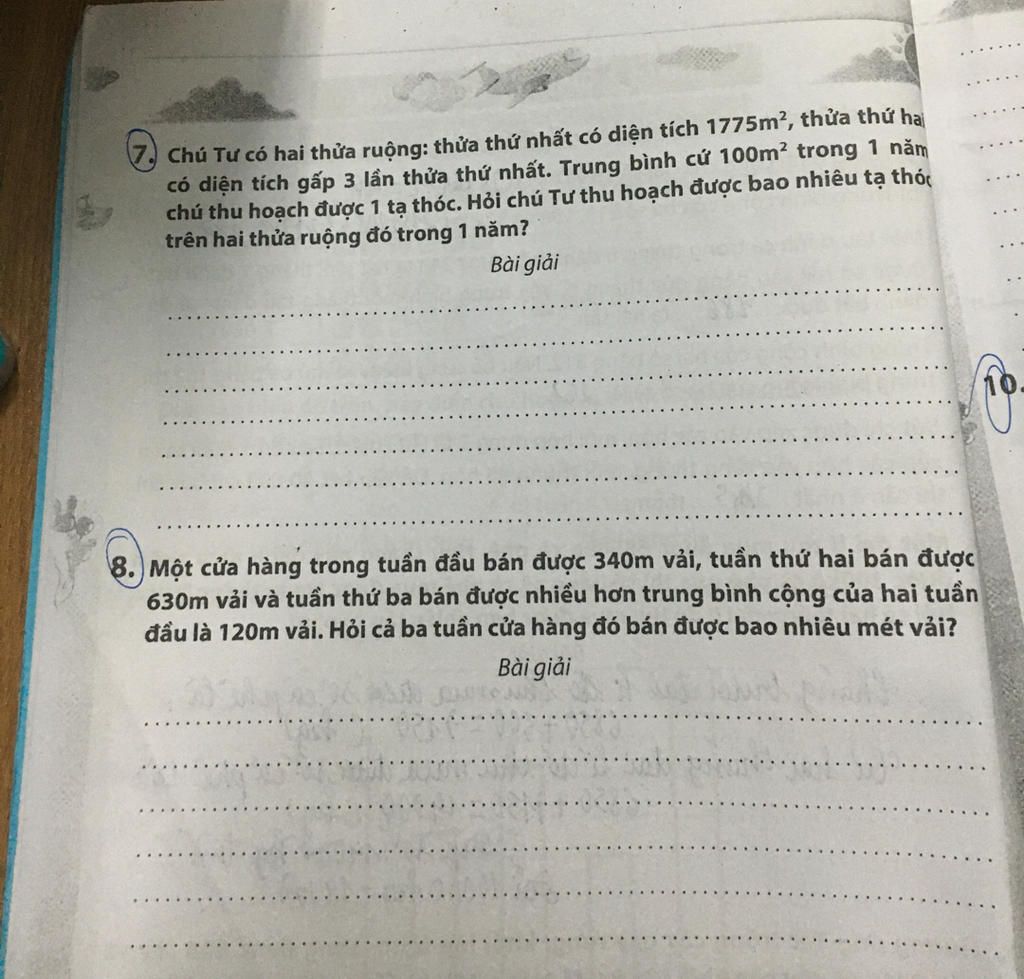 7. Chú Tư có hai thửa ruộng: thửa thứ nhất có diện tích 1775m², thửa thứ hai
có diện tích gấp 3 lần thửa thứ nhất. Trung bình cứ 100m² trong 1 năm
chú thu hoạch được 1 tạ thóc. Hỏi chú Tư thu hoạch được bao nhiêu tạ thóc
trên hai thửa ruộng đó trong 1 năm?
Bài giải
8. Một cửa hàng trong tuần đầu bán được 340m vải, tuần thứ hai bán được
630m vải và tuần thứ ba bán được nhiều hơn trung bình cộng của hai tuần
đầu là 120m vải. Hỏi cả ba tuần cửa hàng đó bán được bao nhiêu mét vải?
Bài giải
10.